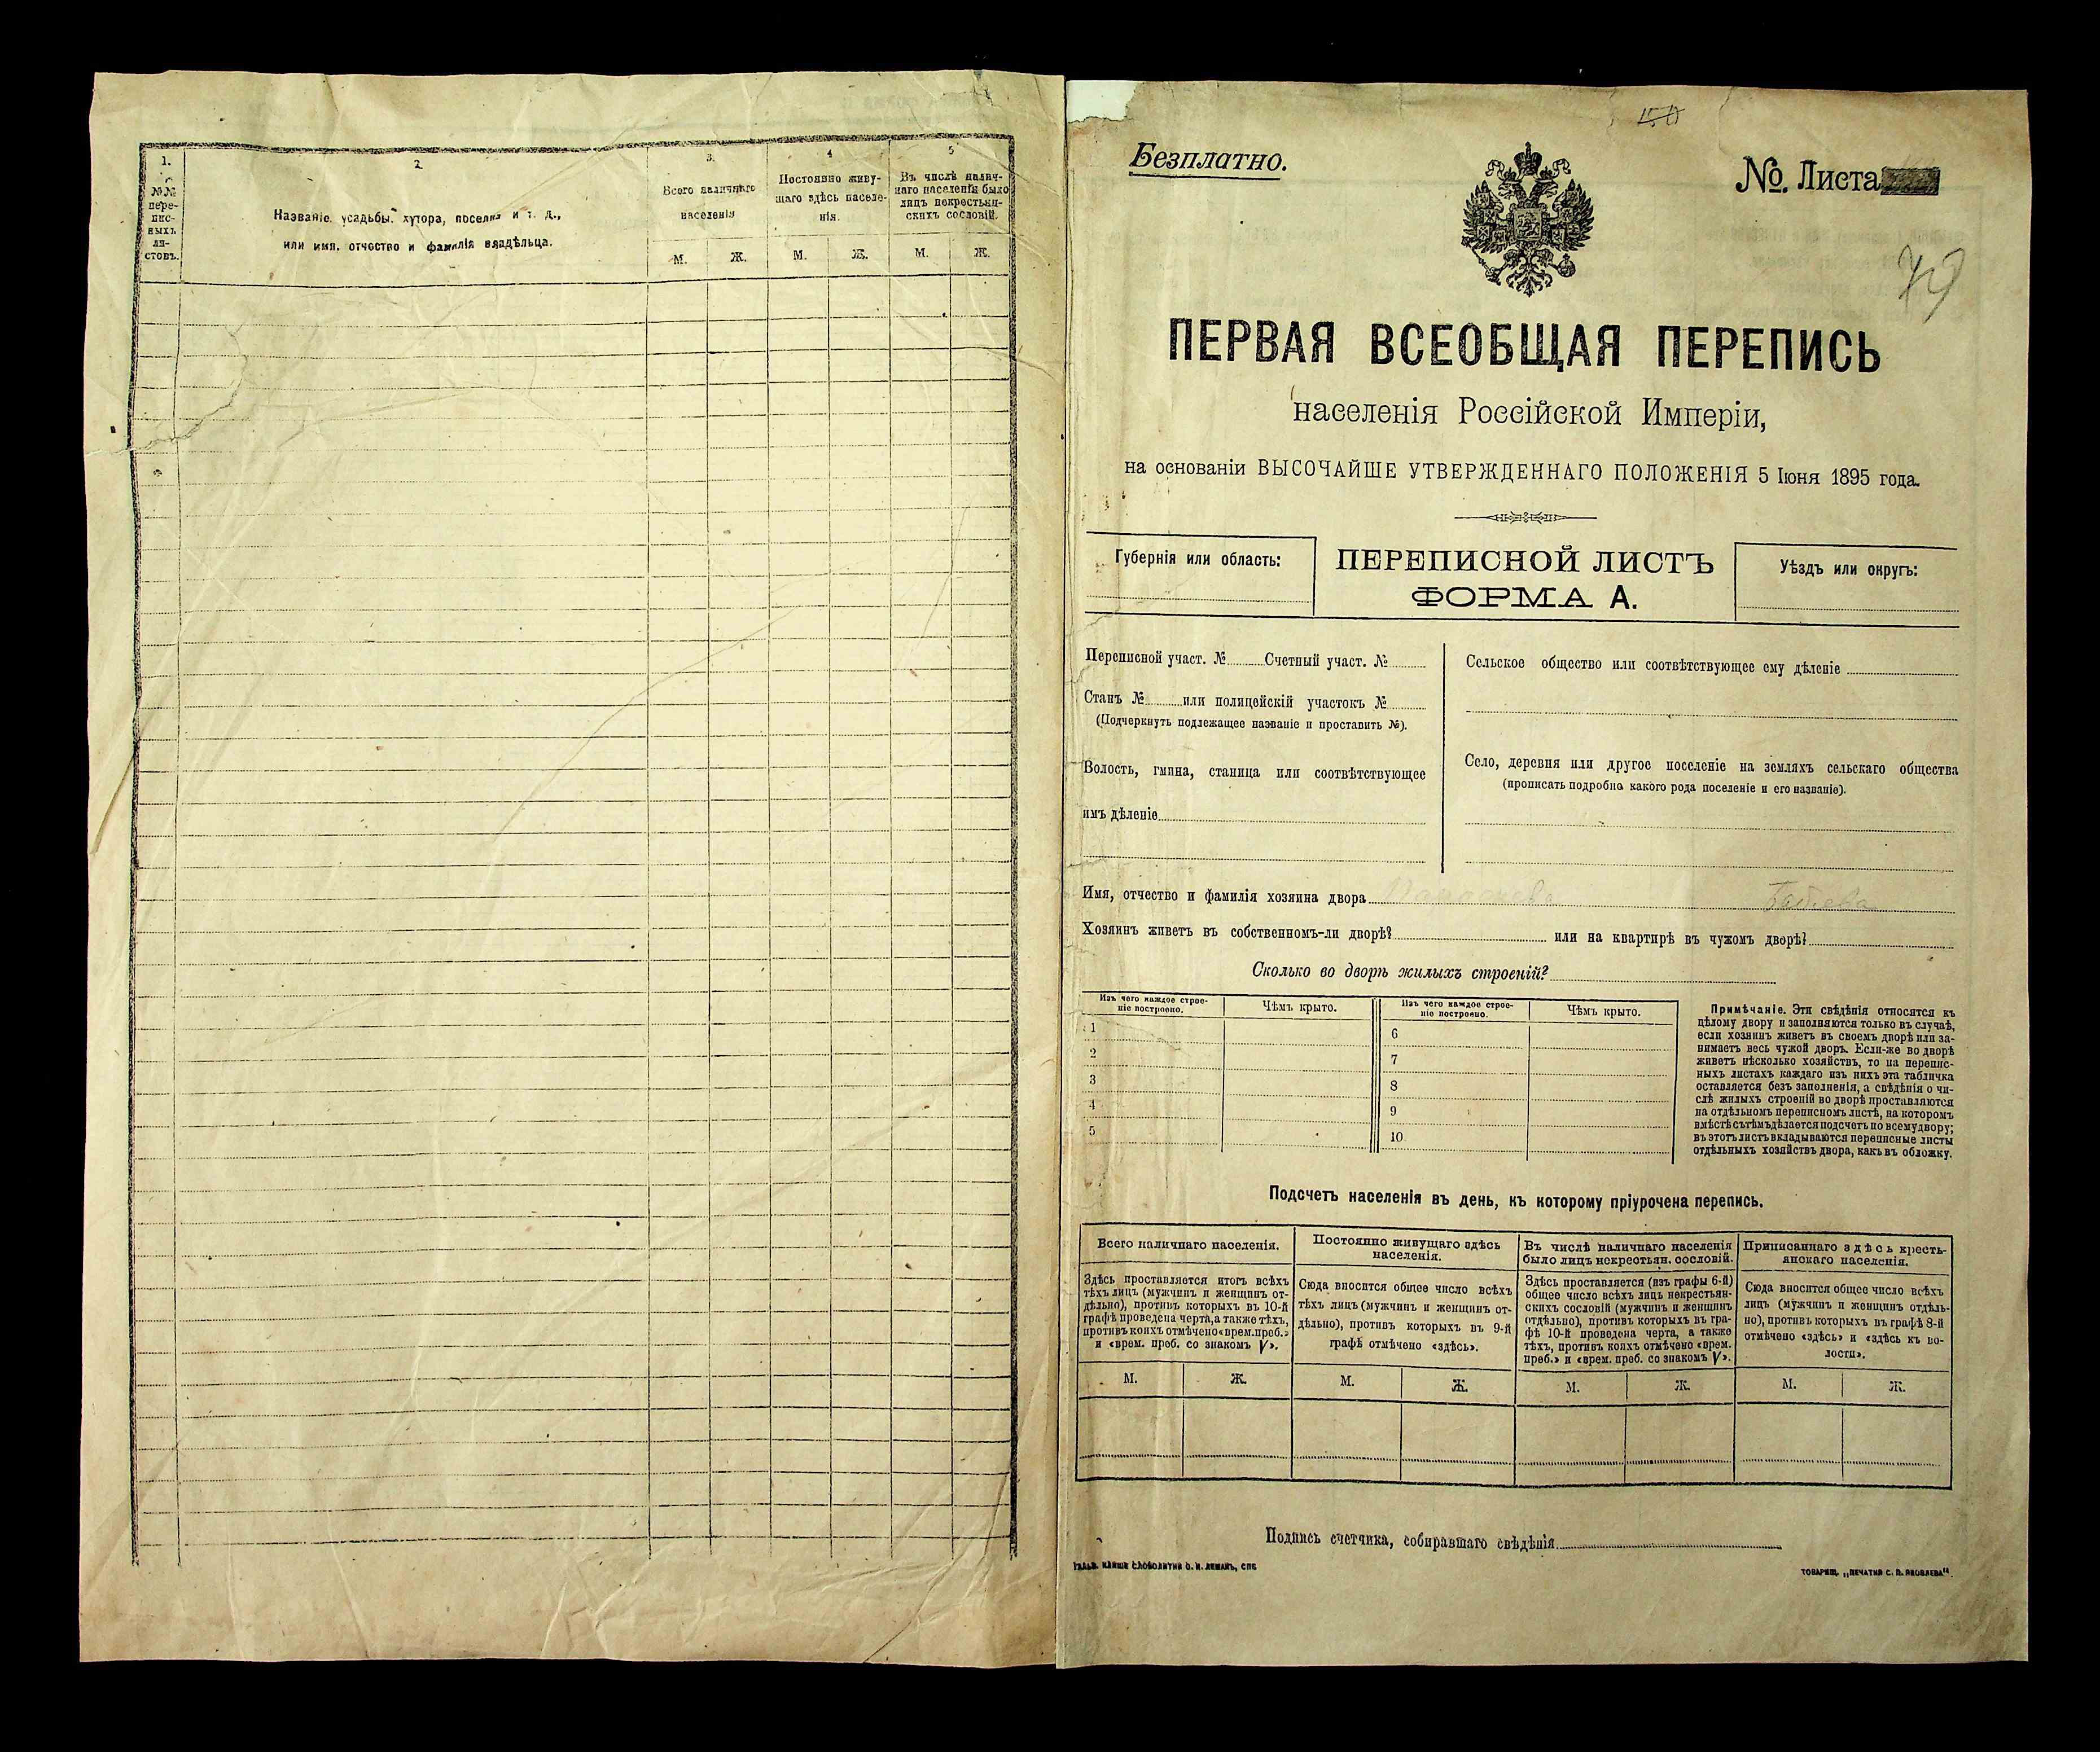 1.
№№
пере-
пис-
ныхъ
ли-
стовъ.
2
Названіе усадьбы, хутора, поселка и т. д.,
или имя, отчество и фамилія владѣльца.
3.
Всего наличнаго
населенія
М. Ж.
4
Постоянно живу-
щаго здѣсь населе-
нія.
М. Ж.
5
Въ числѣ налич-
наго населенія было
лицъ некрестьян-
скихъ сословій.
М. Ж.
Безплатно.
№. Листа
ПЕРВАЯ ВСЕОБЩАЯ ПЕРЕПИСЬ
населенія Россійской Имперіи,
на основаніи ВЫСОЧАЙШЕ УТВЕРЖДЕННАГО ПОЛОЖЕНІЯ 5 Іюня 1895 года.
Губернія или область:
ПЕРЕПИСНОЙ ЛИСТЪ
ФОРМА А.
Уѣздъ или округъ:
Переписной участ. № Счетный участ. №
Станъ № или полицейскій участокъ №
(Подчеркнуть подлежащее названіе и проставить №).
Волость, гмина, станица или соотвѣтствующее
имъ дѣленіе
Сельское общество или соотвѣтствующее ему дѣленіе
Село, деревня или другое поселеніе на земляхъ сельскаго общества
(прописать подробно какого рода поселеніе и его названіе).
Имя, отчество и фамилія хозяина двора
Хозяинъ живетъ въ собственномъ-ли дворѣ? или на квартирѣ въ чужомъ дворѣ?
Сколько во дворѣ жилыхъ строеній?
Изъ чего каждое строе-
ніе построено.
Чѣмъ крыто.
1
2
3
4
5
Изъ чего каждое строе-
ніе построено.
Чѣмъ крыто.
6
7
8
9
10
Примѣчаніе. Эти свѣдѣнія относятся къ
цѣлому двору и заполняются только въ случаѣ,
если хозяинъ живетъ въ своемъ дворѣ или за-
нимаетъ весь чужой дворъ. Если-же во дворѣ
живетъ нѣсколько хозяйствъ, то на перепис-
ныхъ листахъ каждаго изъ нихъ эта табличка
оставляется безъ заполненія, а свѣдѣнія о чи-
слѣ жилыхъ строеній во дворѣ проставляются
на отдѣльномъ переписномъ листѣ, на которомъ
вмѣстѣ съ тѣмъ дѣлается подсчетъ по всему двору;
въ этотъ листъ вкладываются переписные листы
отдѣльныхъ хозяйствъ двора, какъ въ обложку.
Подсчетъ населенія въ день, къ которому пріурочена перепись.
Всего наличнаго населенія.
Здѣсь проставляется итогъ всѣхъ
тѣхъ лицъ (мужчинъ и женщинъ от-
дѣльно), противъ которыхъ въ 10-й
графѣ проведена черта, а также тѣхъ,
противъ коихъ отмѣчено «врем. преб.»
и «врем. преб. со знакомъ V».
М. Ж.
Постоянно живущаго здѣсь
населенія.
Сюда вносится общее число всѣхъ
тѣхъ лицъ (мужчинъ и женщинъ от-
дѣльно), противъ которыхъ въ 9-й
графѣ отмѣчено «здѣсь».
М. Ж.
Въ числѣ наличнаго населенія
было лицъ некрестьян. сословій.
Здѣсь проставляется (изъ графы 6-й)
общее число всѣхъ лицъ некрестьян-
скихъ сословій (мужчинъ и женщинъ
отдѣльно), противъ которыхъ въ гра-
фѣ 10-й проведена черта, а также
тѣхъ, противъ коихъ отмѣчено «врем.
преб.» и «врем. преб. со знакомъ V».
М. Ж.
Приписаннаго здѣсь кресть-
янскаго населенія.
Сюда вносится общее число всѣхъ
лицъ (мужчинъ и женщинъ отдѣль-
но), противъ которыхъ въ графѣ 8-й
отмѣчено «здѣсь» и «здѣсь къ во-
лости».
М. Ж.
Подпись счетчика, собиравшаго свѣдѣнія
ГАЛЬВ. КЛИШЕ СЛОВОЛИТНИ О. И. ЛЕМАНЪ, СПБ
ТОВАРИЩ. „ПЕЧАТНЯ С. П. ЯКОВЛЕВА“.